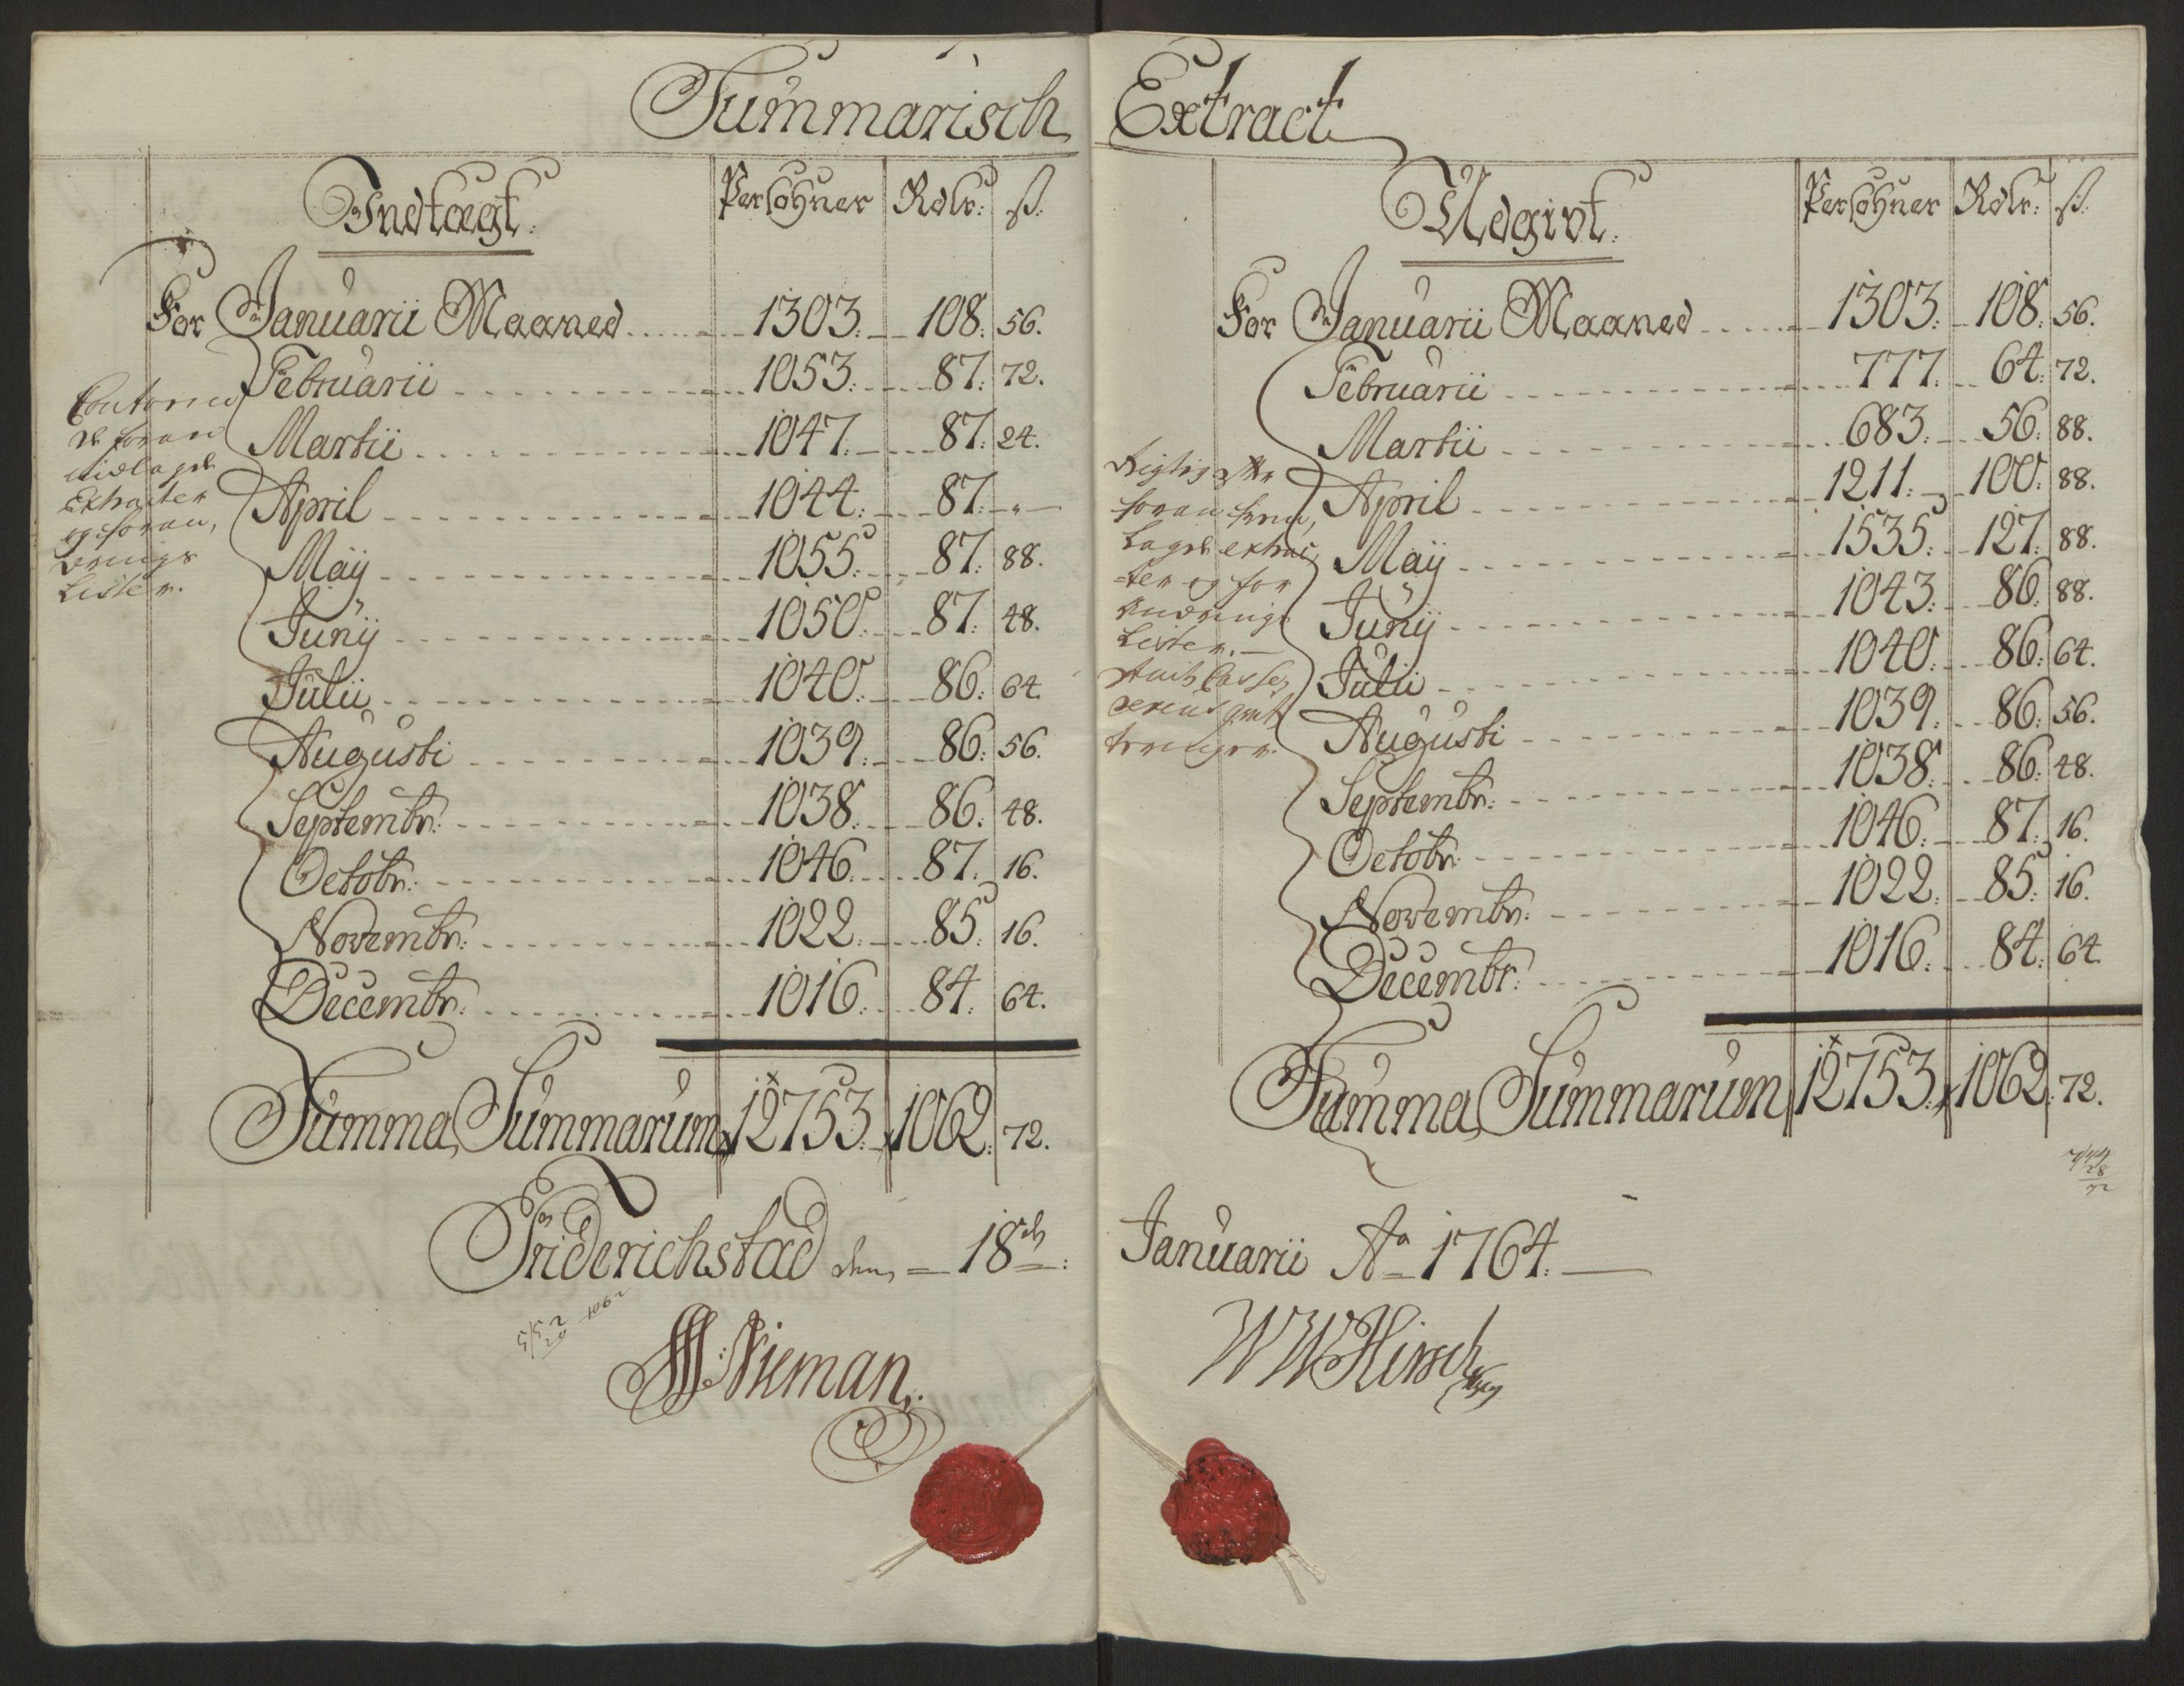 Summarisch Extract
Indtægt. Persohner Rdlr: ß.
For Januarii Maaned 1303. 108. 56.
Februarii 1053. 87. 72.
Martii 1047. 87. 24.
April 1044. 87. "
Maÿ 1055. 87. 88.
Junÿ 1050. 87. 48.
Julii 1040. 86. 64.
Augusti 1039. 86. 56.
Septembr: 1038. 86. 48.
Octobr: 1046. 87. 16.
Novembr: 1022. 85. 16.
Decembr: 1016. 84. 64.
Summa Summarum 12753. 1062. 72.
foran
Extracter
og foran,
drings
Lister.
Udgivt. Persohner Rdlr: ß.
For Januarii Maaned 1303. 108. 56.
Februarii 777. 64. 72.
Martii 683. 56. 88.
April 1211. 100. 88.
Maÿ 1535. 127. 88.
Junÿ 1043. 86. 88.
Julii 1040. 86. 64.
Augusti 1039. 86. 56.
Septembr: 1038. 86. 48.
Octobr: 1046. 87. 16.
Novembr: 1022. 85. 16.
Decembr: 1016. 84. 64.
Summa Summarum 12753. 1062. 72.
Rigtig
foran frem,
Lagde extrac
ter og for
andrings
Lister.
Friderichstad den 18de: Januarii Ao 1764.
1062
Nieman
WWHirsch